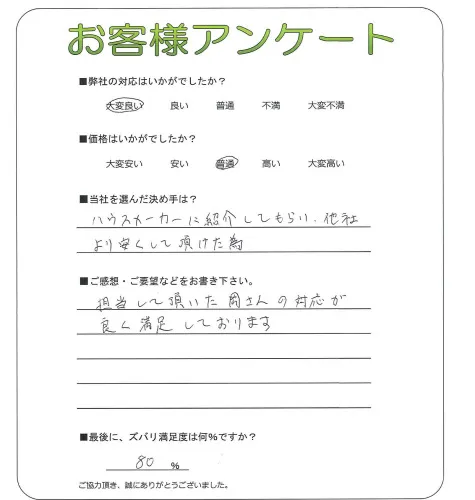 お客様アンケート
■弊社の対応はいかがでしたか？
大変良い 良い 普通 不満 大変不満
■価格はいかがでしたか？
大変安い 安い 普通 高い 大変高い
■当社を選んだ決め手は？
ハウスメーカーに紹介してもらい、他社
より安くして頂けた為
■ご感想・ご要望などをお書き下さい。
担当して頂いた岡さんの対応が
良く満足しております
■最後に、ズバリ満足度は何%ですか？
80 %
ご協力頂き、誠にありがとうございました。